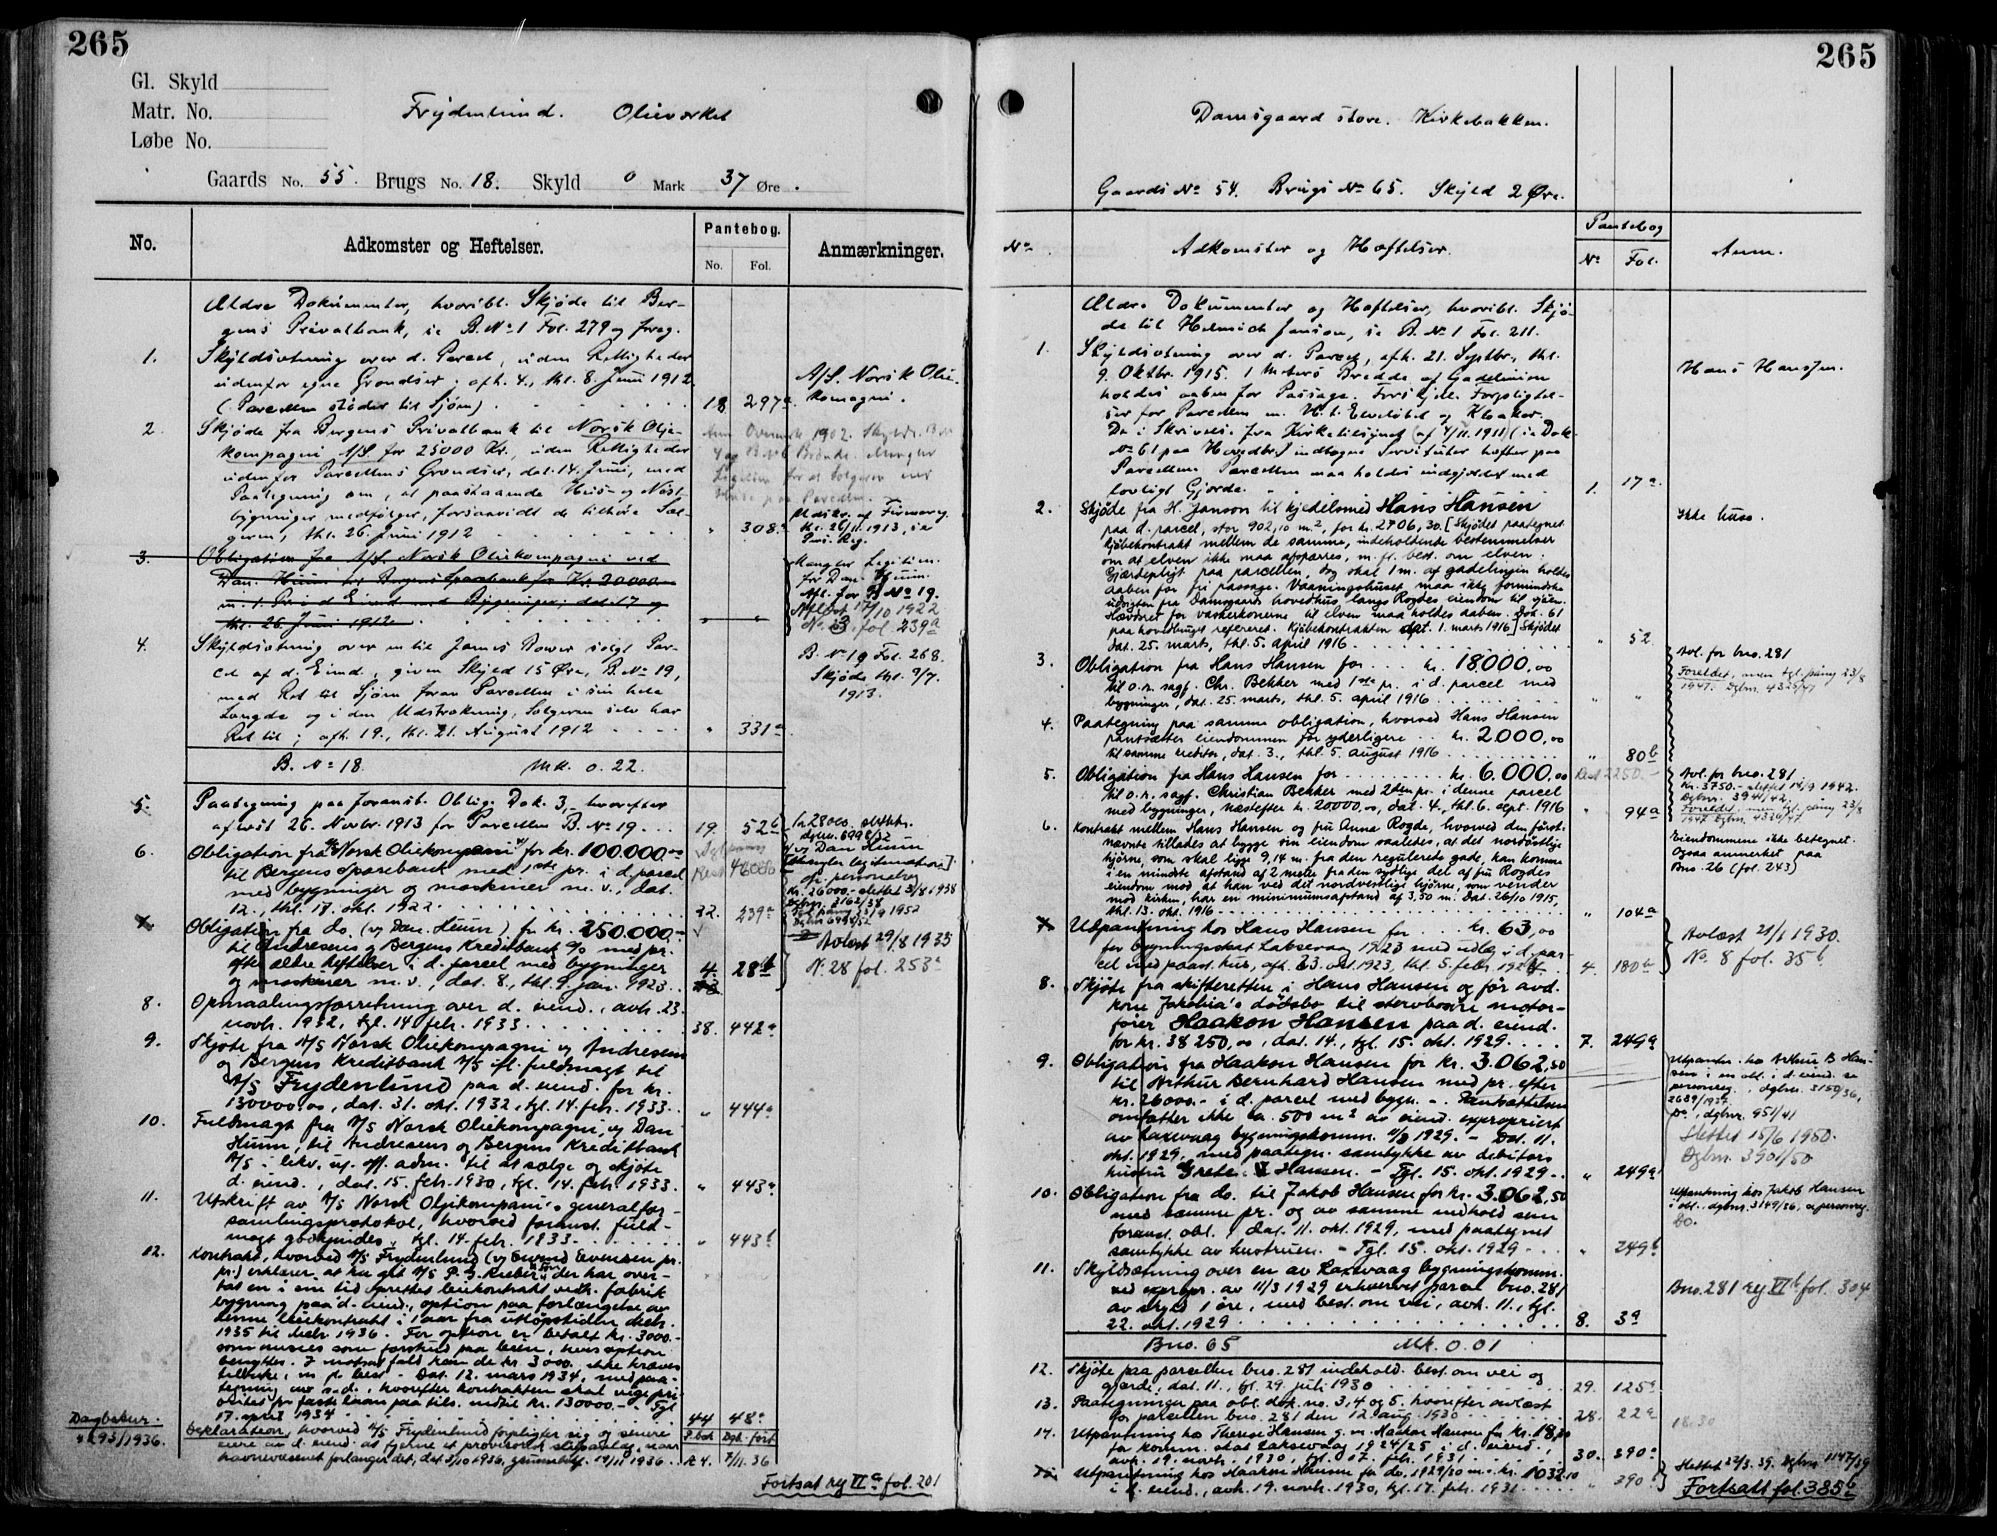 265
Gl. Skyld
Matr. No.
Løbe No.
Frydenlund. Olieverket
Gaards No. 55. Brugs No. 18. Skyld 0 Mark 37 Øre.
No. Adkomster og Heftelser. Pantebog. No. Fol. Anmærkninger.
Ældre Dokumenter, hvoribl. Skjøde til Ber-
gens Privatbank, se B. No 1 Fol. 279 og foreg.
1. Skyldsætning over d. Parcel, uden Rettigheder
udenfor egne Grændser; afh. 4., thl. 8. Juni 1912
(Parcellen støder til Sjøen) 18 297a
A/S. Norsk Olie-
kompagni.
2. Skjøde fra Bergens Privatbank til Norsk Olje-
kompagni A/S for 25000 Kr., uden Rettigheder
udenfor Parcellens Grændser, dat. 14. Juni, med
Paategning om, at paastaaende Hus- og Nøst-
bygninger medfølger, forsaavidt de tilhøre Sæl-
geren, thl. 26 Juni 1912 " 308a
Udskr. af Firmareg.
thl. 26/11. 1913, se
Pers. Reg.
3. Obligation fra A/S. Norsk Oliekompagni ved
Dan. Huun til Bergens Sparebank for Kr. 20000
m. 1. Pri. i d. Eiend. med Bygninger; dat. 17 og
thl. 26. Juni 1912 " "
Mangler Legitim.
for Dan. Huun.
Afl. for B. No 19.
Aflæst 17/10 1922
No. 3 fol 239a
4. Skyldsætning over en til James Bower solgt Par-
cel af d. Eiend., given Skyld 15 Øre, B. No 19,
med Ret til Sjøen foran Parcellen i sin hele
Længde og i den Udstrækning, Sælgeren selv har
Ret til; afh. 19., thl. 21. August 1912 " 331a
B. No 19 Fol. 268.
Skjøde thl. 9/7.
1913.
B. No 18. Mk. 0.22.
5. Paategning paa foranst. Oblig. Dok. 3, hvorefter
aflæst 26. Novbr. 1913 for Parcellen B. No 19 19. 52b
6. Obligation fra A/S Norsk Oliekompani for kr. 100.000.00
til Bergens Sparebank med 1ste pr. i d. parcel
med bygninger og maskiner m. v., dat.
12., thl. 17. okt. 1922 22. 239a
v/ Dan Huun
[Mangler legitimation].
Kr. 26000.- slettet 3/8 1938
7. Obligation fra do. (v/ Dan. Huun) for kr. 250.000.-
til Andresens og Bergens Kreditbank A/S med pr.
efter ældre heftelser i d. parcel med bygninger
og maskiner m. v., dat. 8., thl. 9. jan. 1923 4. 28b
Avlæst 29/8 1935
N. 28 fol. 253a
8. Opmaalingsforretning over d. eiend., avh. 23.
novbr. 1932, tgl. 14 febr. 1933 38. 442a
9. Skjøte fra A/S Norsk Oliekompagni og Andresens
og Bergens Kreditbank A/S ifl. fuldmagt til
A/S Frydenlund paa d. eiend. for kr.
130000.00, dat. 31. okt. 1932, tgl. 14. febr. 1933 " 444a
10. Fuldmagt fra A/S Norsk Oliekompagni, v/ Dan
Huun, til Andresens og Bergens Kreditbank
A/S - likv. u. off. adm. til at sælge og skjøte
d. eiend., dat. 15. febr. 1930, tgl. 14. febr. 1933. " 443a
11. Utskrift av A/S Norsk Oljekompani's generalfor-
samlingsprotokol, hvorved foranst. fuld-
magt godkjendes, tgl. 14. febr. 1933 " 443b
12. Kontrakt, hvorved A/S Frydenlund (v/ Eivind Evensen pr.
pr.) erklærer at ha git A/S P. G. Rieber der har over-
tat en i sin tid oprettet leiekontrakt vedr. fabrik-
bygning paa d. eiend., option paa forlængelse av
denne leiekontrakt i 1 aar fra utløpstiden decbr.
1935 til decbr. 1936. For option er betalt kr. 3000.-
som ansees som forskud paa leien, hvis option
benyttes. I motsat fald kan de kr. 3000 ikke kræves
tilbake, m. fl. best. - Dat. 12. mars 1934, med paa-
tegning av s. d., hvorefter kontrakten skal vige pri-
oritet for faste laan paa tils. indtil kr. 130000.- Tgl.
17. april 1934 44 48a
Dagboknr.
4293/1936.
Deklaration, hvorved A/S Frydenlund forpligter sig og senere
eiere av d. eiend. at fjerne et provisorisk slipanlæg, naar
havnevæsenet forlanger det, dat. 3/10 1936, 14/11 1936 R 4. 7/11.36
Fortsat reg VIa fol. 201
265
Damsgaard store. Kirkebakken.
Gaards No 54. Brugs No 65. Skyld 2 Øre.
No Adkomster og Hæftelser. Pantebog No Fol. Anm.
Ældre Dokumenter og Hæftelser, hvoribl. Skjø-
de til Helmich Janson, se B. No 1 Fol. 211.
1. Skyldsætning over d. Parcel, afh. 21. Septbr., thl.
9. Oktbr. 1915. 1 Meters Bredde af Gadelinien
holdes aaben for Passage. Forskjell. Forpligtel-
ser for Parcellen m. H. t. Elveløbet og Kloaker.
De i Skrivelse fra Kirketilsynet (af 4/11. 1911) (se Dok.
No 61 paa Hovedbr.) indtagne Servituter hæfter paa
Parcellen. Parcellen maa holdes indgjerdet med
lovligt Gjerde. 1. 17a
Hans Hansen.
2. Skjøde fra H. Janson til kjedelsmed Hans Hansen
paa d. parcel, stor 902,10 m2, for kr. 2706,30. [Skjødet paategnet
kjøbekontrakt mellem de samme, indeholdende bestemmelser
om at elven ikke maa afspærres, m. fl. best. om elven.
Gjærdepligt paa parcellen, dog skal 1 m. af gadelinjen holdes
aaben for fri passage. Vaaningshuset maa ikke formindske
udsigten fra Damsgaards hovedhus langs Rogdes eiendom til sjøen.
Hævdret for vaskerkonerne til elven maa holdes aaben. Dok. 61
paa hovedbruget refereret. Kjøbekontrakten dat. 1. marts 1916] Skjødet
dat. 25. marts, thl. 5. april 1916 " 52
Ikke huse.
3. Obligation fra Hans Hansen for kr. 18000,00
til o. r. sagf. Chr. Bekker med 1ste pr. i d. parcel med
bygninger, dat. 25. marts, thl. 5. april 1916 " "
Avl. for bno. 281
Foreldet, uten tgl. påny 23/8
1947. Dgbnr. 4325/47
4. Paategning paa samme obligation, hvorved Hans Hansen
pantsætter eiendommen for yderligere kr. 2000,00
til samme kreditor, dat. 3., thl. 5. august 1916 " 80b
5. Obligation fra Hans Hansen for kr. 6.000,00 Rest 2250.-
til o. r. sagf. Christian Bekker med 2den pr. i denne parcel
med bygninger, næstefter kr. 20000,00, dat. 4., thl. 6. sept. 1916 " 94a
Avl. for bno. 281
Kr. 3750.- slettet 14/9 1942.
Dgbnr. 3941/42.
Foreldet, uten tgl. påny 23/8
6. Kontrakt mellem Hans Hansen og fru Anna Rogde, hvorved den først-
nævnte tillades at bygge sin eiendom saaledes, at det nordøstlige
hjørne, som skal ligge 9,14 m. fra den regulerede gade, kan komme
i en mindste afstand af 2 meter fra den sydlige del af fru Rogdes
eiendom mod at han ved det nordvestlige hjørne, som vender
mod kirken, har en minimumsafstand af 3,50 m. Dat. 26/10 1915,
thl. 13. okt. 1916 " 104a
Eiendommene ikke betegnet.
Ogsaa anmerket paa
Bno. 26 (fol. 243)
7. Utpantning hos Hans Hansen for kr. 63,00
for bygningsskat Laksevaag 1923 med utlæg i d. par-
cel med paast. hus, afh. 23. okt. 1923, thl. 5. febr. 1924 4. 180b
Avlæst 21/1 1930.
No. 8 fol. 35b
8. Skjøte fra skifteretten i Hans Hansen og før avd.
kone Jakobia's dødsbo til stervboeier motor-
fører Haakon Hansen paa d. eiend.
for kr. 38250,00, dat. 14., tgl. 15. okt. 1929 7. 249a
9. Obligation fra Haakon Hansen for kr. 3.062,50
til Arthur Bernhard Hansen med pr. efter
kr. 26000.- i d. parcel med bygn. -. Pantsættelsen
omfatter ikke ca. 500 m2 av eiend. expropriert
av Laksevaag bygningskomm. 11/3 1929. - Dat. 11.
okt. 1929, med paategn. samtykke av debitors
hustru Grete Hansen. - Tgl. 15. okt. 1929 " 249a
Utpantn. hos Arthur B. Han-
sen i en obl. i d. eiend. se
personreg. dgbnr. 3150/36,
2689/1937, dgbnr. 951/41
Slettet 15/6 1950.
Dgbnr. 3901/50
10. Obligation fra do. til Jakob Hansen for kr. 3.062,50
med samme pr. og av samme indhold som
foranst. obl., dat. 11. okt. 1929, med paategnet
samtykke av hustruen. - Tgl. 15. okt. 1929 " 249b
Utpantning hos Jakob Hansen
i obl. dgbnr. 3149/36, se personreg.
Do.
11. Skyldsætning over en av Laksevaag bygningskomm.
ved expropr. av 11/3 1929 erhvervet parcel bno. 281
av skyld 1 øre, med best. om vei, avh. 11., tgl.
22. okt. 1929 8. 3a
Bno. 281 reg VIb fol. 304
Bno. 65 Mk. 0.01
12. Skjøte paa parcellen bno. 281 indehold. best. om vei og
gjerde, dat. 11., tgl. 29. juli 1930 29. 125a
13. Paategninger paa obl. dok. no. 3, 4 og 5, hvorefter avlæst
for parcellen bno. 281 den 12 aug. 1930 28. 22a
14. Utpantning hos Therese Hansen g. m. Haakon Hansen for kr. 18,20
for komm. skat Laksevaag 1924/25 i d. eiend.,
avh. 19. novbr. 1930, tgl. 17. febr. 1931 30. 390a
15. Utpantning hos Haakon Hansen for do. 1929/30 m. kr. 1032,10
i d. eiend., avh. 19. novbr. 1930, tgl. 17. febr. 1931 " 390
Slettet 22/3. 39. Dgbnr. 1147/39
Fortsatt fol. 385b